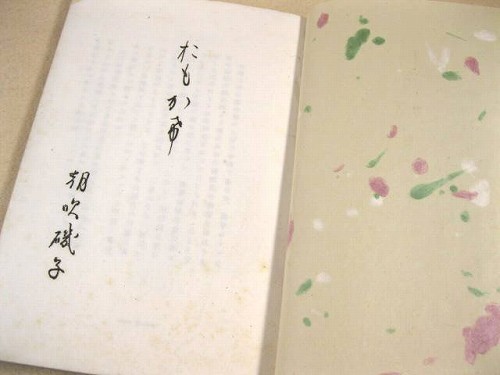 おもかけ
朝吹磯子